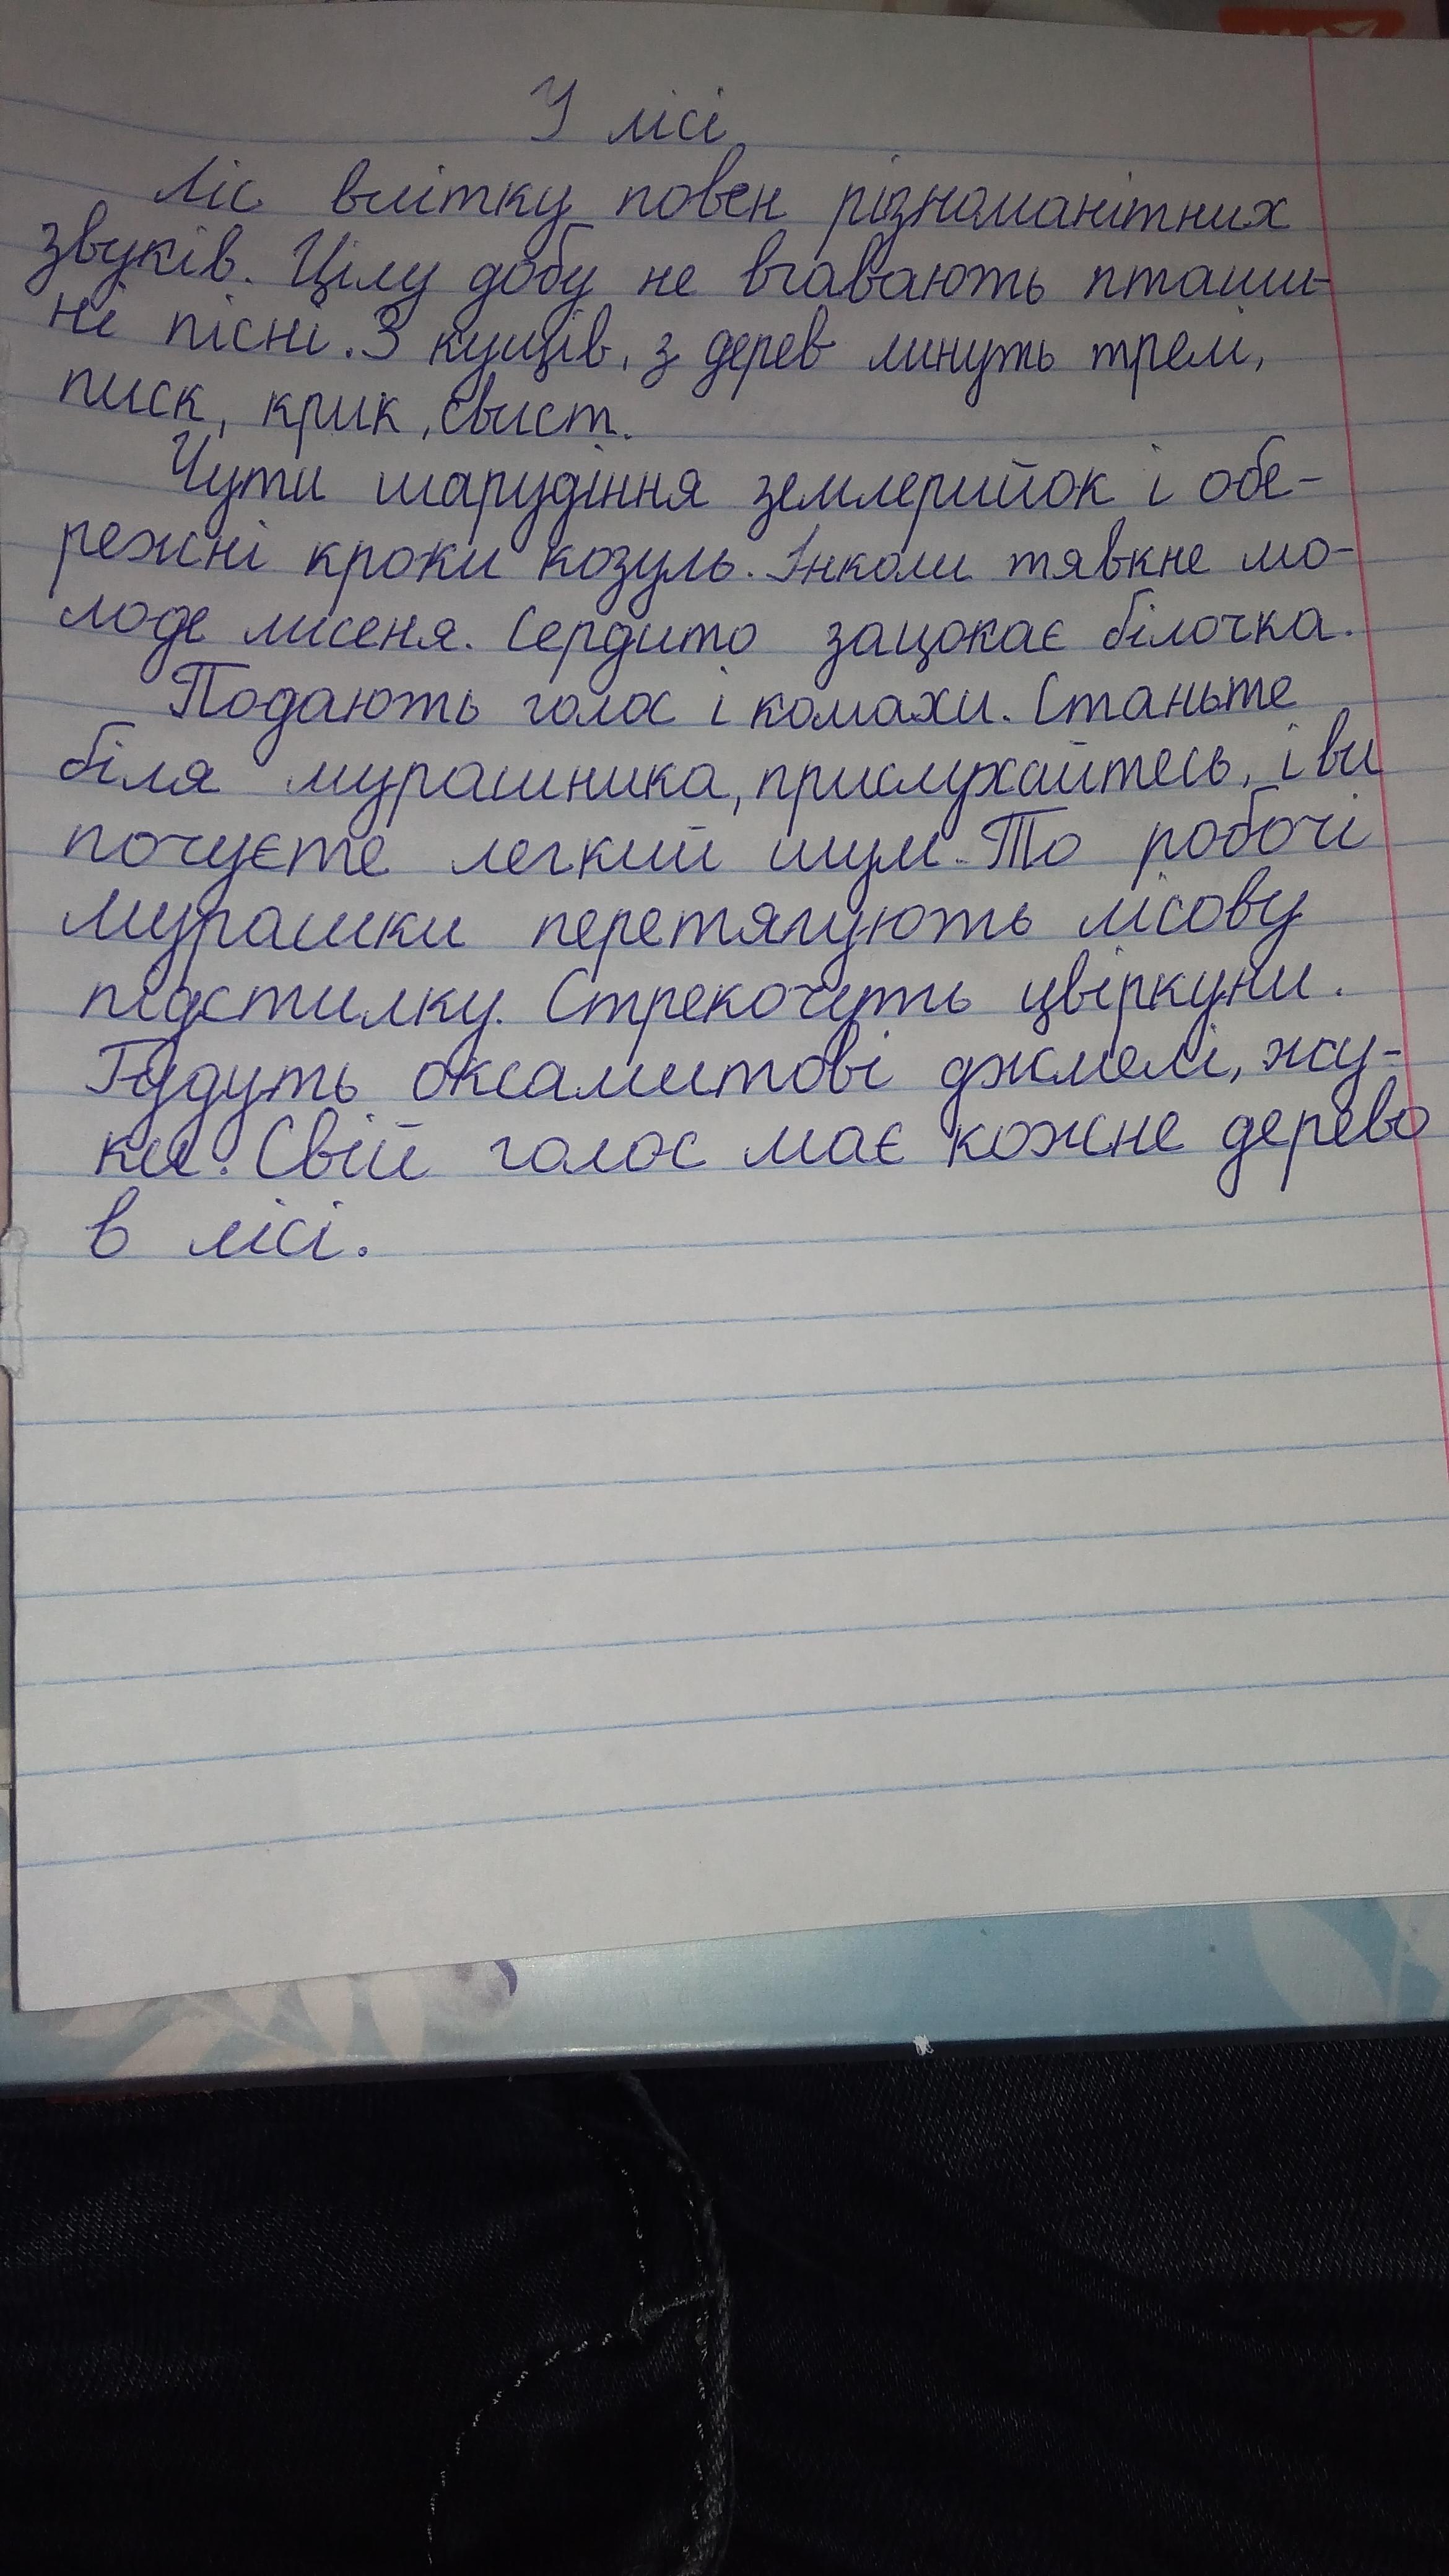 У лісі
Ліс влітку повен різноманітних
звуків. Цілу добу не вгавають пташи-
ні пісні. З кущів, з дерев линуть трелі,
писк, крик, свист.
Чути шарудіння землерийок і обе-
режні кроки козуль. Інколи тявкне мо-
лоде лисеня. Сердито зацокає білочка.
Подають голос і комахи. Станьте
біля мурашника, прислухайтесь, і ви
почуєте легкий шум. То робочі
мурашки перетягують лісову
підстилку. Стрекочуть цвіркуни.
Гудуть оксамитові джмелі, жу-
ки. Свій голос має кожне дерево
в лісі.